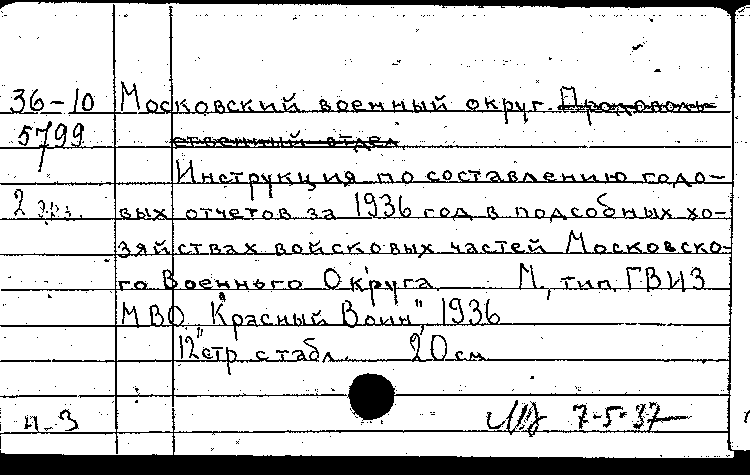 36-10 Московский военный округ. Продоволь-
5799 ственный отдел
Инструкция по составлению годо-
2 экз. вых отчетов за 1936 год в подсобных хо-
зяйствах войсковых частей Московско-
го Военного Округа. М., тип. ГВИЗ
МВО "Красный Воин", 1936
12 стр. с табл. 20 см
п-3 7-5-37